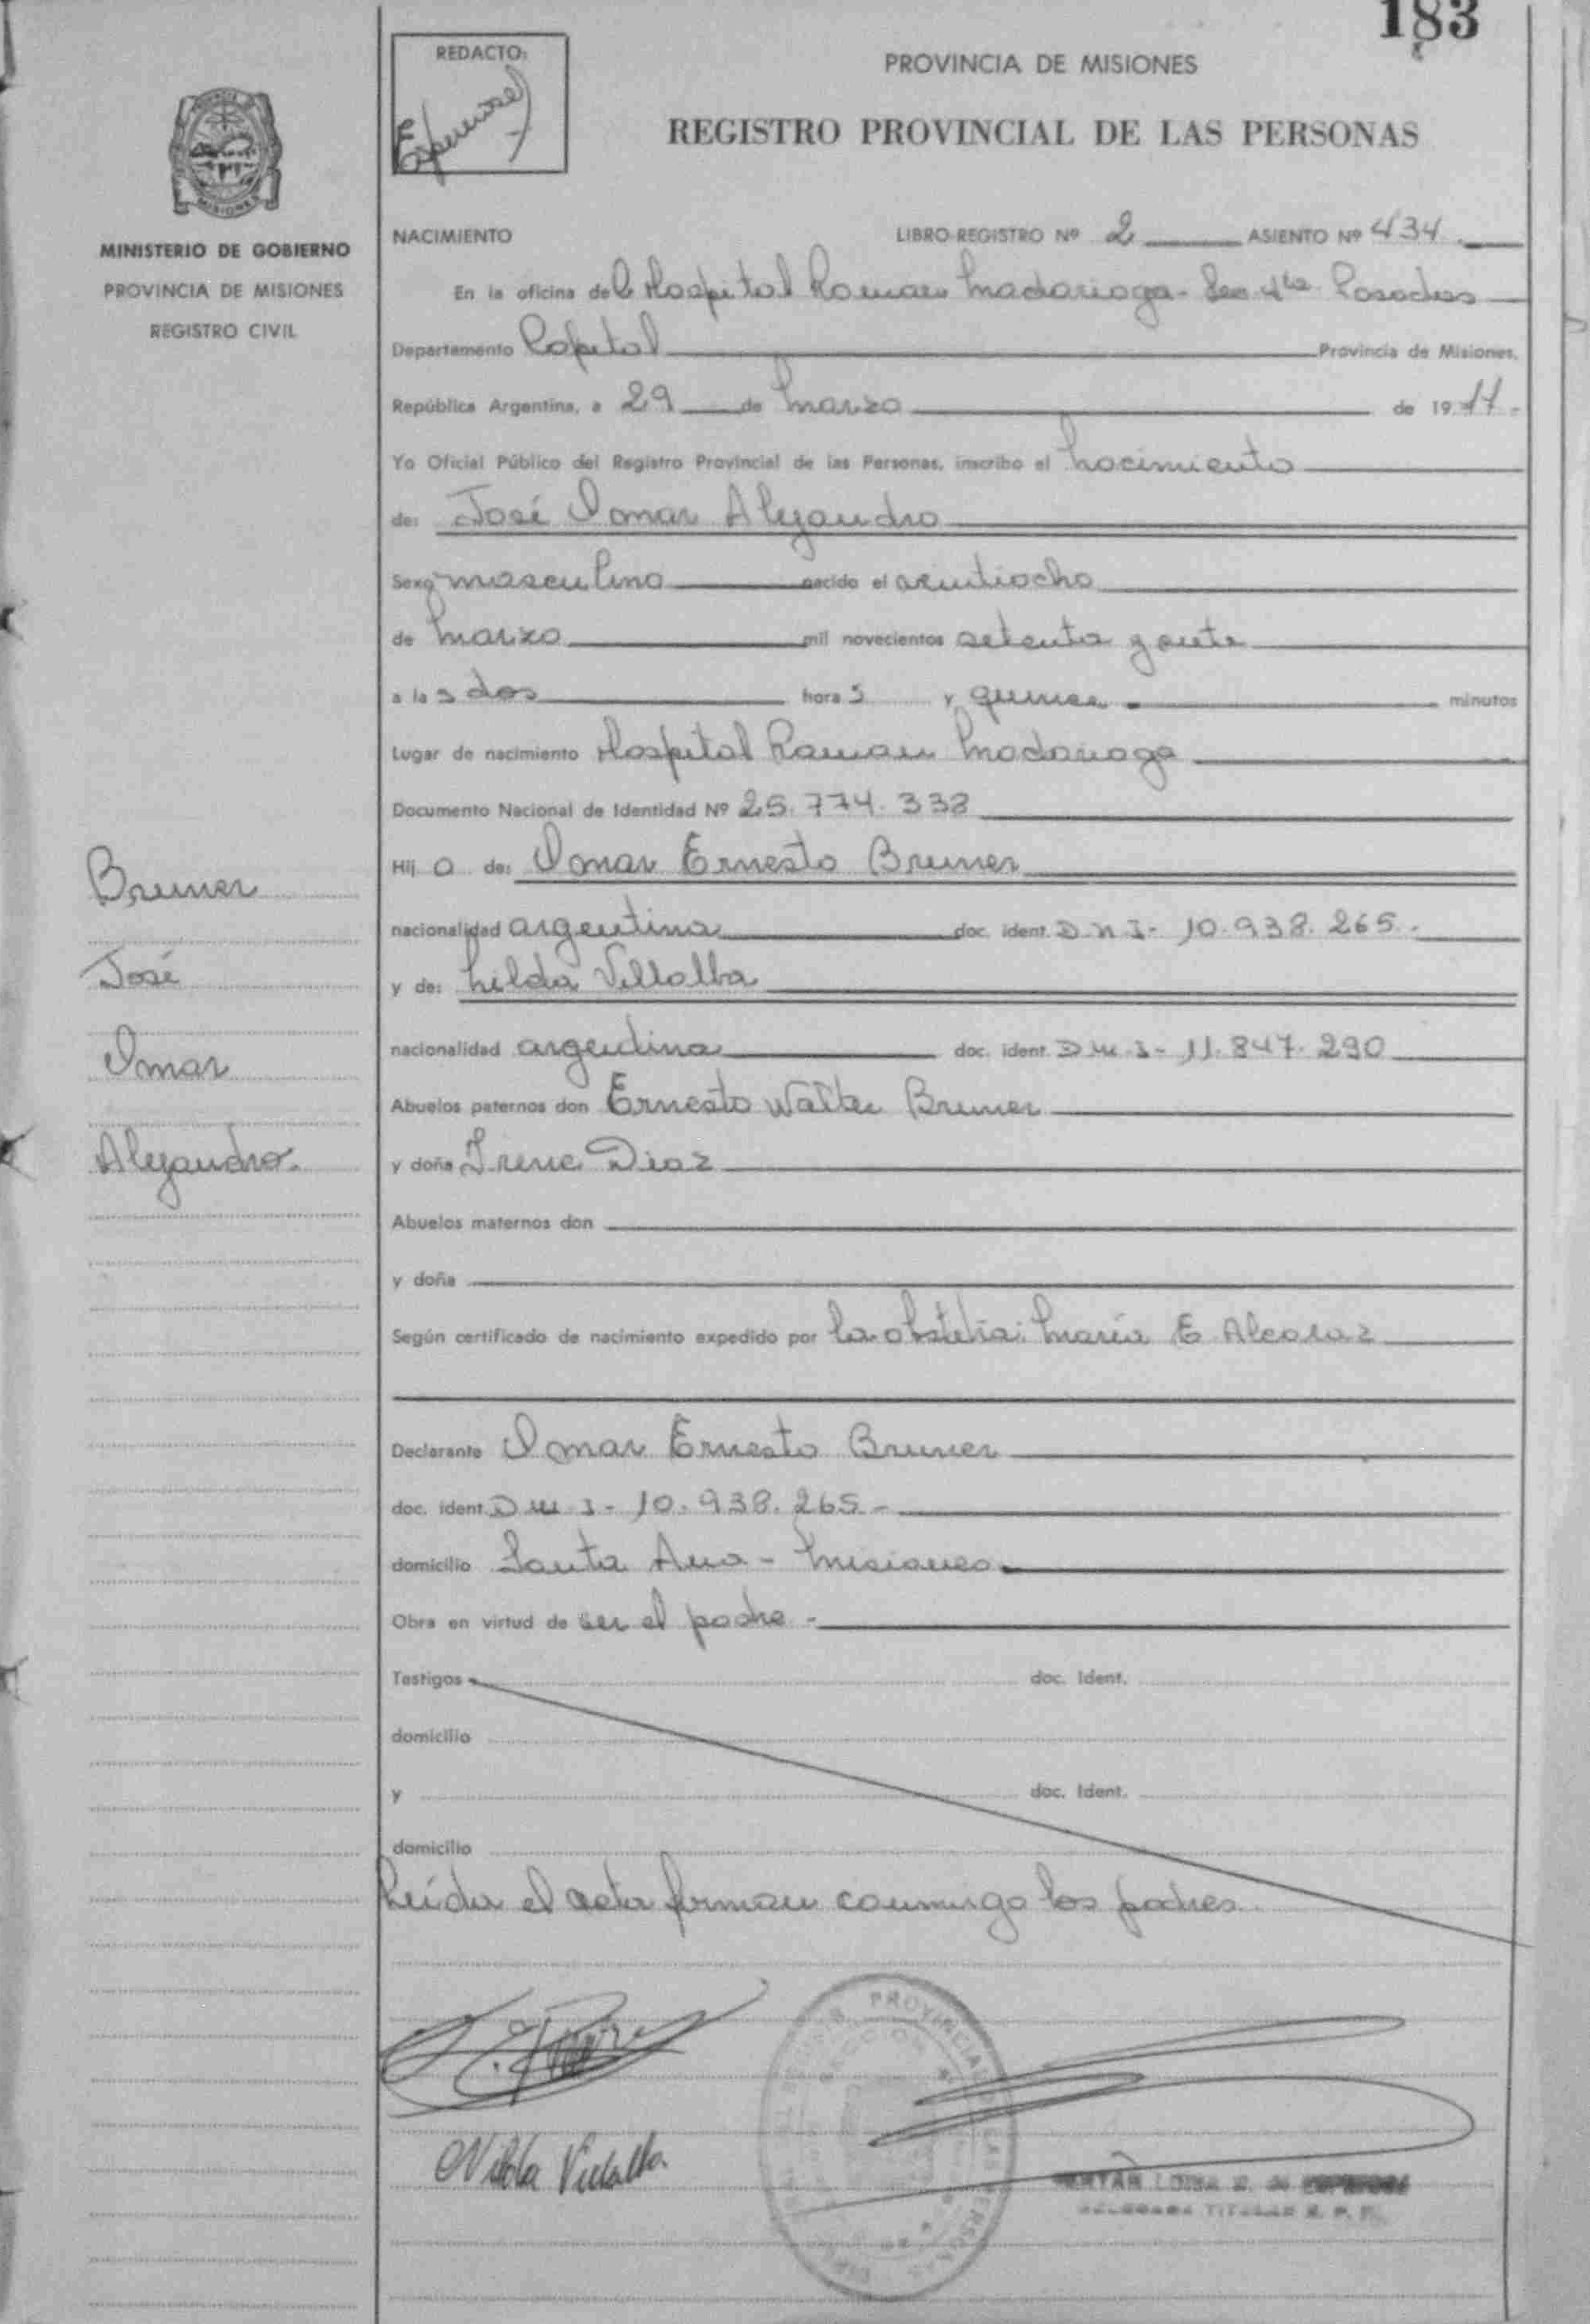 183
REDACTO:
PROVINCIA DE MISIONES
REGISTRO PROVINCIAL DE LAS PERSONAS
MISIONES
MINISTERIO DE GOBIERNO
PROVINCIA DE MISIONES
REGISTRO CIVIL
NACIMIENTO LIBRO-REGISTRO Nº 2 ASIENTO Nº 434
En la oficina del Hospital Ramon Madariaga - Sec 4ta Posadas
Departamento Capital Provincia de Misiones.
República Argentina, a 29 de Marzo de 1977.
Yo Oficial Público del Registro Provincial de las Personas, inscribo el Nacimiento
de: José Omar Alejandro
Sexo masculino nacido el veintiocho
de Marzo mil novecientos setenta y siete
a las dos horas y quince minutos
Lugar de nacimiento Hospital Ramon Madariaga
Documento Nacional de Identidad Nº 25.774.338
Hijo de: Omar Ernesto Bruner
nacionalidad argentina doc. ident. DNI- 10.938.265.
y de: Nilda Villalba
nacionalidad argentina doc. ident. DNI- 11.847.290
Abuelos paternos don Ernesto Walter Bruner
y doña Irene Diaz
Abuelos maternos don
y doña
Según certificado de nacimiento expedido por la obstetra: María E Alcaraz
Declarante Omar Ernesto Bruner
doc. ident. DNI- 10.938.265-
domicilio Santa Ana - Misiones
Obra en virtud de ser el padre -
Testigos doc. Ident.
domicilio
y doc. Ident.
domicilio
Leída el acta firman conmigo los padres
Bruner
José
Omar
Alejandro.
Nilda Villalba
PROVINCIAL
TITULAR